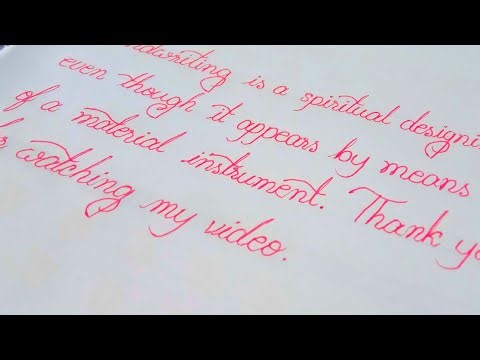 ndwriting is a spiritual designi
even though it appears by means
of a material instrument. Thank yo
watching my video.